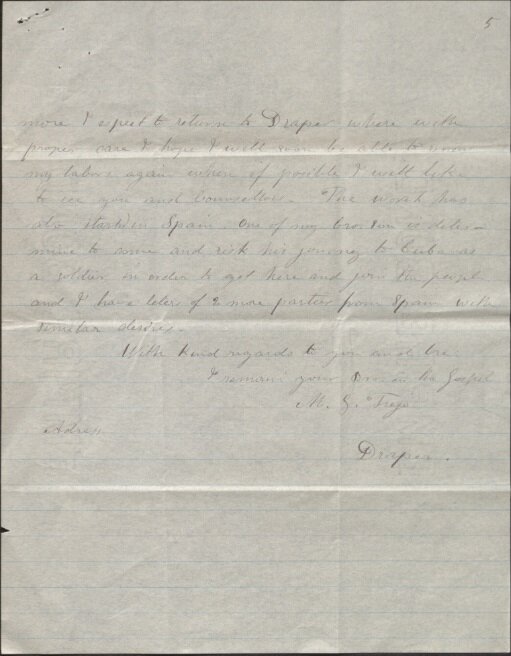 5
more I expect to return to Draper where with
proper care I hope I will soon be able to
my labors again when if possible I will like
to see you and Councellors. The work has
also started in Spain. One of my is deter-
mine to come and risk his journey to Cuba as
a soldier in order to get here and join the people
and I have leters of 2 more parties from Spain with
similar desires.
With kind regards to you and
I remain your in the Gospel
M. G. Trejo
Adress
Draper.